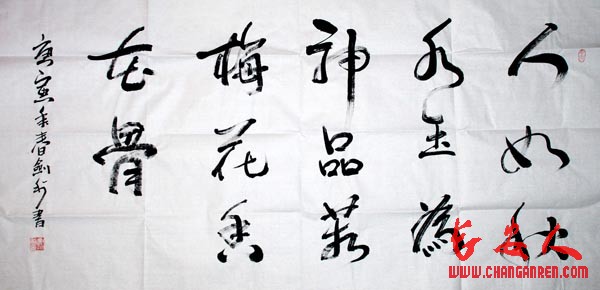 人如秋
水玉為
神品若
梅花香
在骨
庚寅年春剑书
长安人
WWW.CHANGANREN.COM